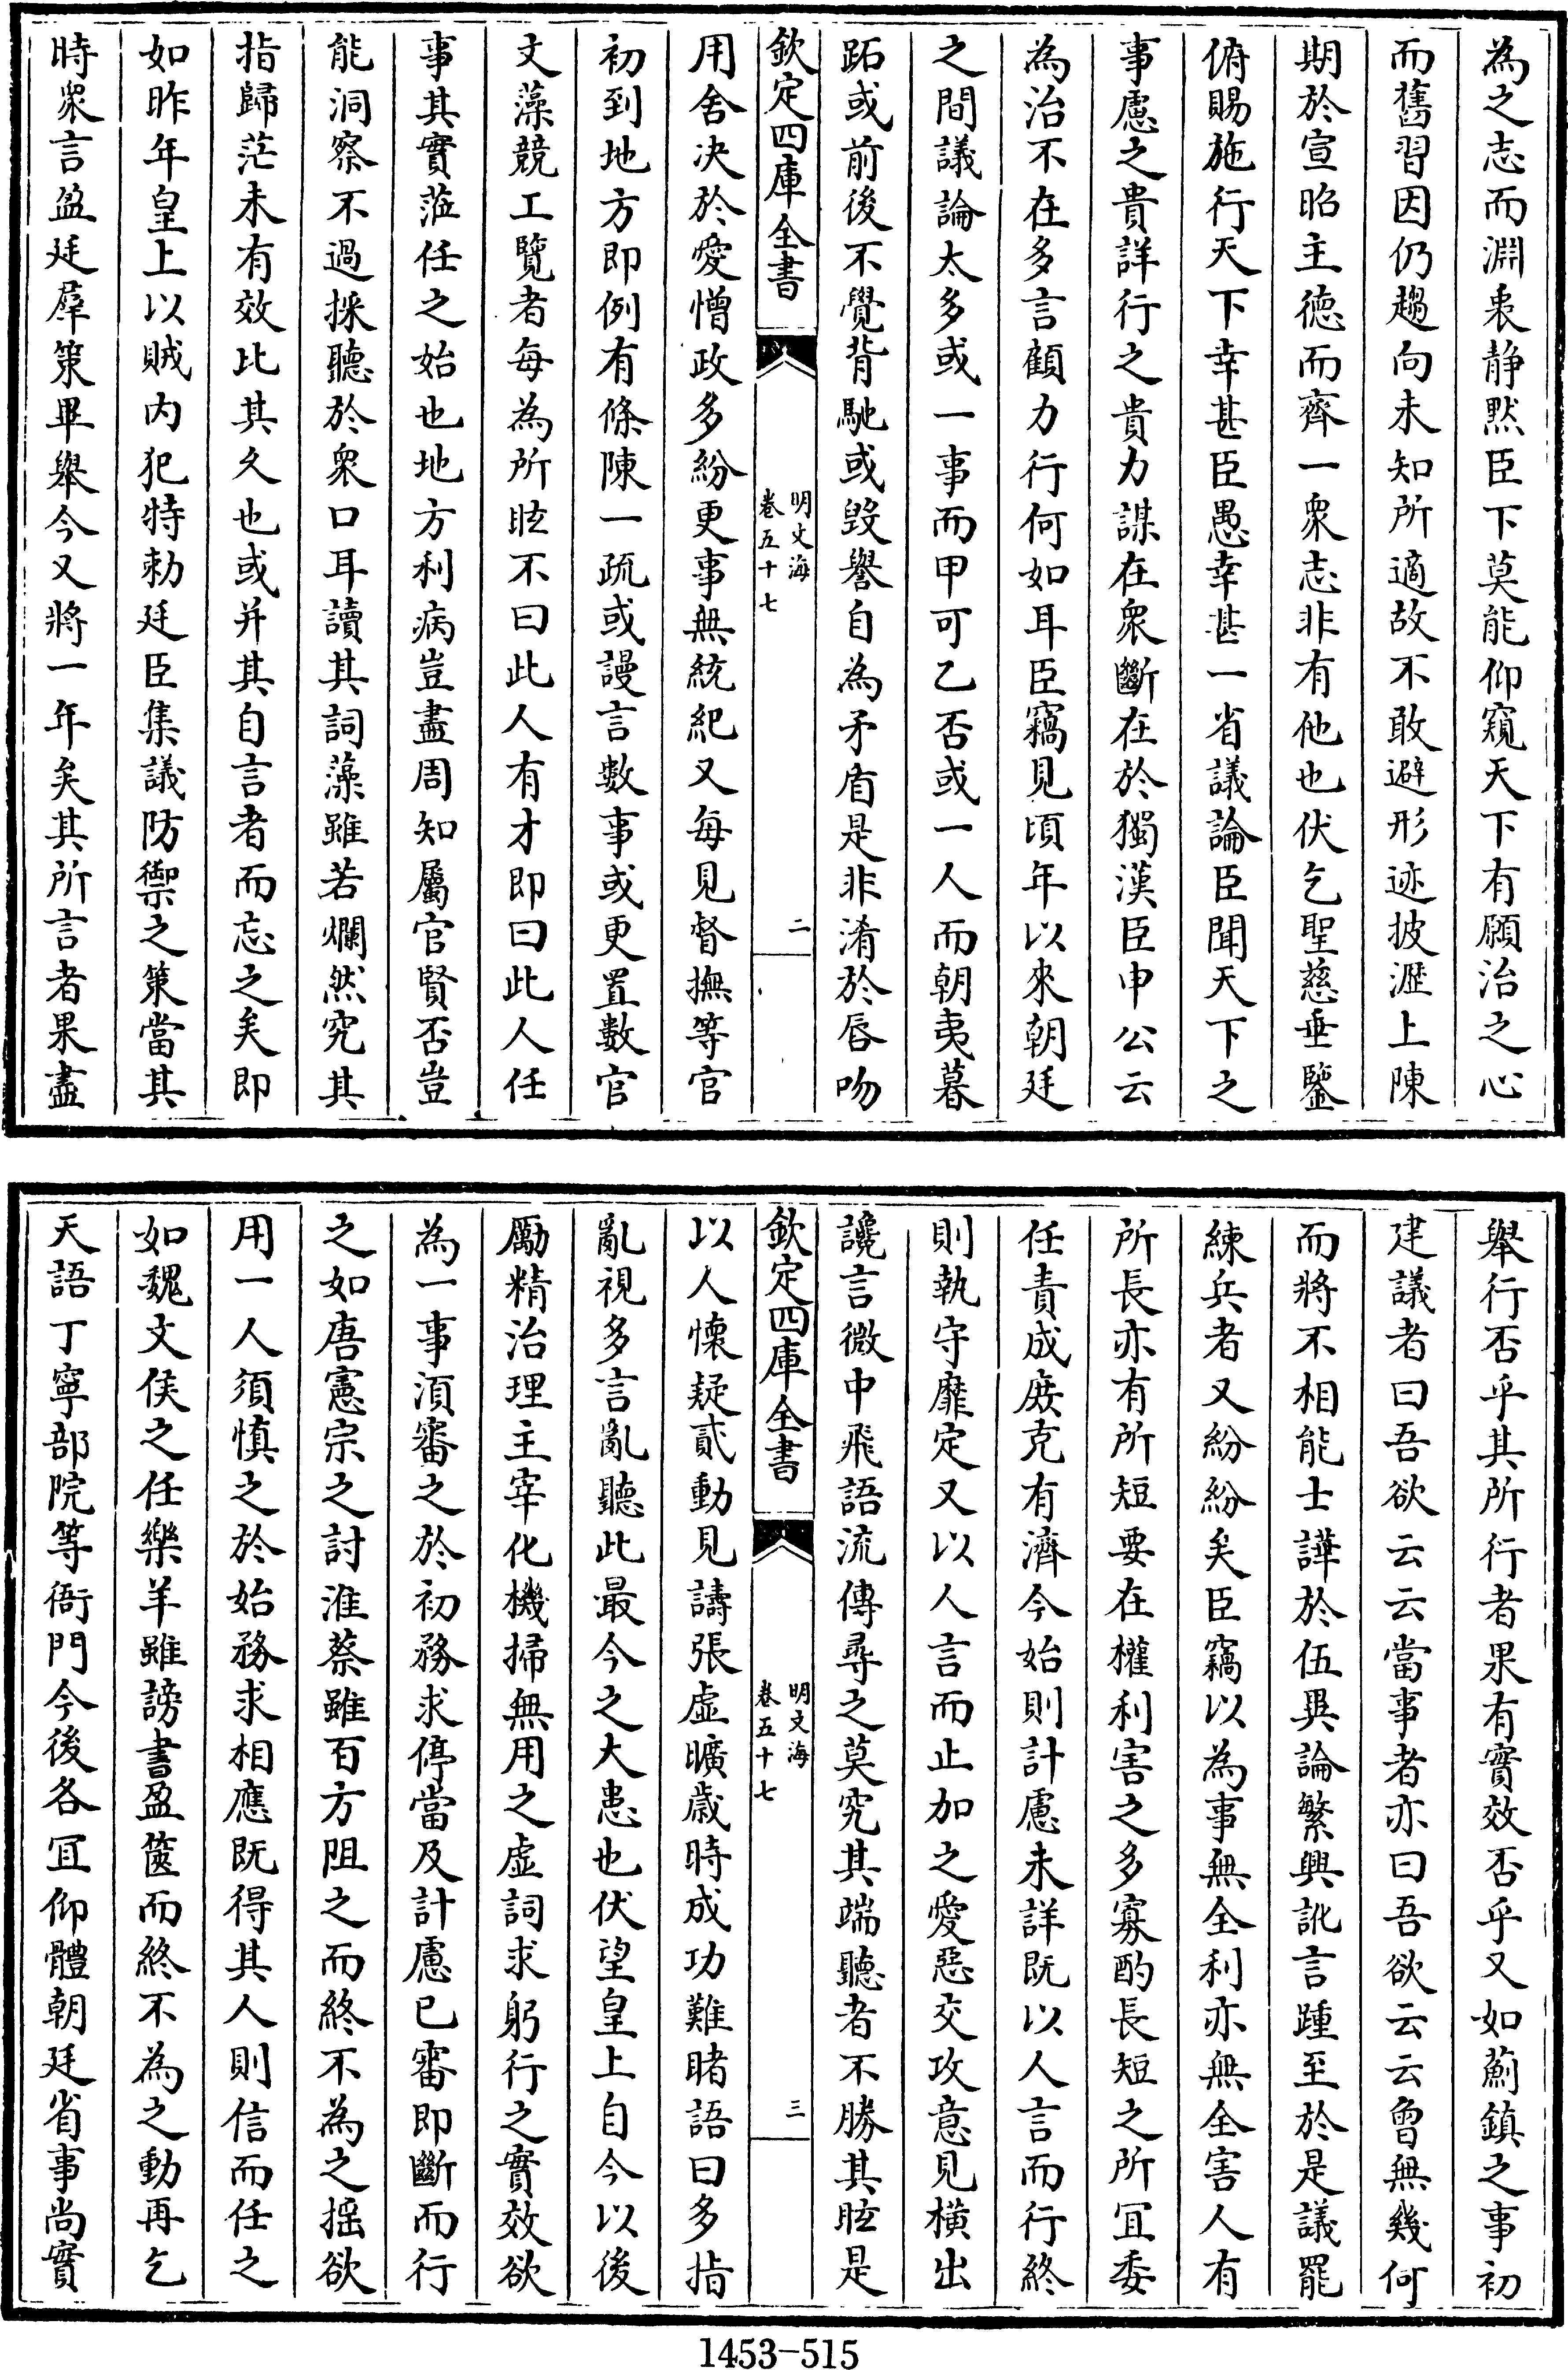 為之志而淵衷静黙臣下莫能仰窺天下有願治之心
而舊習因仍趨向未知所適故不敢避形迹披瀝上陳
期於宣昭主徳而齊一衆志非有他也伏乞聖慈垂鑒
俯賜施行天下幸甚臣愚幸甚一省議論臣聞天下之
事慮之貴詳行之貴力謀在衆斷在於獨漢臣申公云
為治不在多言顧力行何如耳臣竊見頃年以來朝廷
之間議論太多或一事而甲可乙否或一人而朝夷暮
跖或前後不覺背馳或毁譽自為矛盾是非淆於唇吻
欽定四庫全書
明文海
卷五十七
二
用舍决於愛憎政多紛更事無統紀又每見督撫等官
初到地方即例有條陳一疏或謾言數事或更置數官
文藻競工覽者每為所眩不曰此人有才即曰此人任
事其實蒞任之始也地方利病豈盡周知屬官賢否豈
能洞察不過採聽於衆口耳讀其詞藻雖若爛然究其
指歸茫未有效比其久也或并其自言者而忘之矣即
如昨年皇上以賊内犯特勅廷臣集議防禦之策當其
時衆言盈廷羣策畢舉今又將一年矣其所言者果盡
舉行否乎其所行者果有實效否乎又如薊鎮之事初
建議者曰吾欲云云當事者亦曰吾欲云云曾無幾何
而將不相能士譁於伍異論繁興訛言踵至於是議罷
練兵者又紛紛矣臣竊以為事無全利亦無全害人有
所長亦有所短要在權利害之多寡酌長短之所宜委
任責成庻克有濟今始則計慮未詳既以人言而行終
則執守靡定又以人言而止加之愛惡交攻意見横出
讒言微中飛語流傳尋之莫究其端聽者不勝其眩是
欽定四庫全書
明文海
卷五十七
三
以人懐疑貳動見譸張虚曠歲時成功難睹語曰多指
亂視多言亂聽此最今之大患也伏望皇上自今以後
勵精治理主宰化機掃無用之虚詞求躬行之實效欲
為一事湏審之於初務求停當及計慮已審即斷而行
之如唐憲宗之討淮蔡雖百方阻之而終不為之摇欲
用一人須慎之於始務求相應既得其人則信而任之
如魏文侯之任樂羊雖謗書盈篋而終不為之動再乞
天語丁寧部院等衙門今後各宜仰體朝廷省事尚實
1453-515